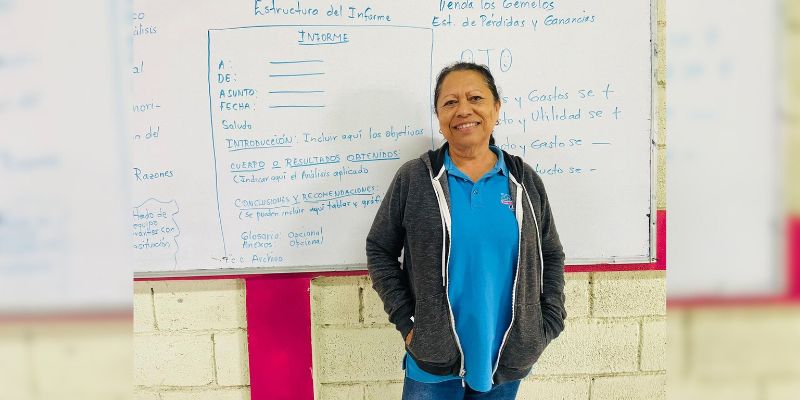 álisis
al
del
Razones
Estructura del Informe
INFORME
A:
DE:
ASUNTO:
FECHA:
Saludo
INTRODUCCIÓN: Incluir aquí los objetivos
CUERPO O RESULTADOS OBTENIDOS
(Indicar aquí el Análisis aplicado
CONCLUSIONES Y RECOMENDACIONES:
(Se pueden incluir aquí tablas y gráf
Glosario: Opcional
Anexos: Opcional
c.c Archivo
Tienda los Gemelos
Est. de Pérdidas y Ganancias
OJO
s y Gastos se +
to y Utilidad se +
y Gasto se -
ucto se -